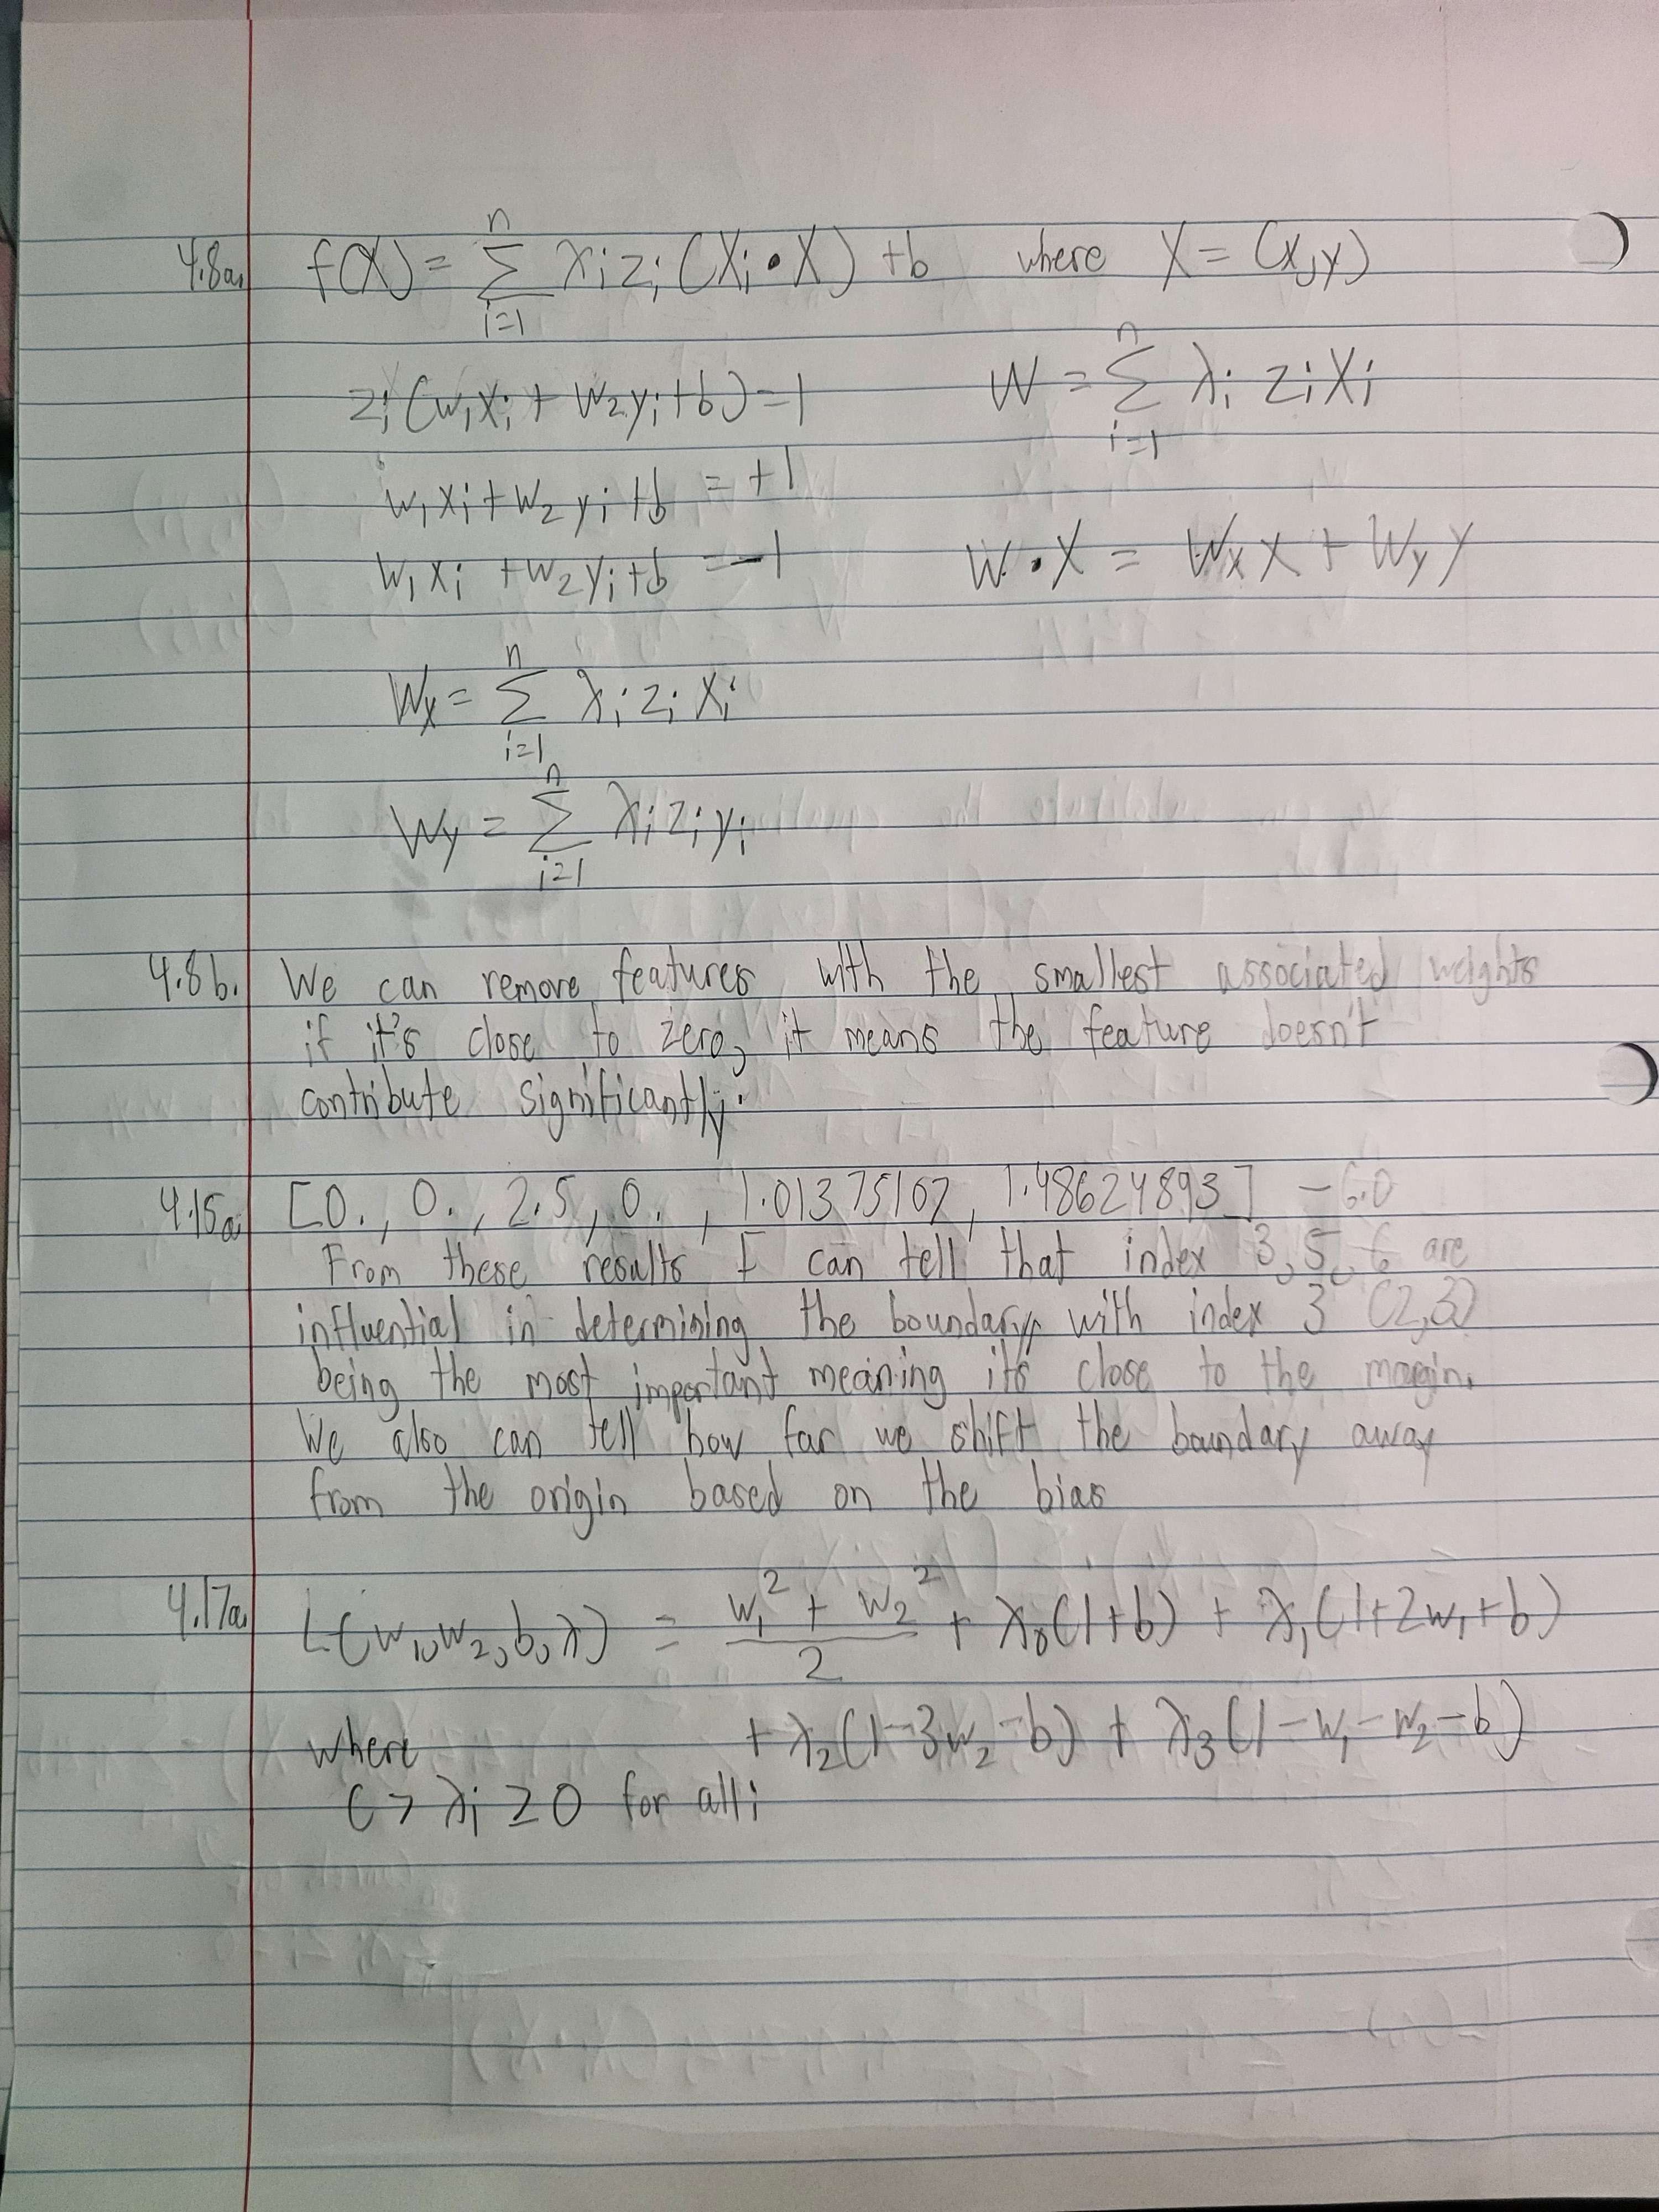 4.8a. f(X) = n Σ i=1 λi zi (Xi • X) + b where X = (x,y)
zi (w1xi + w2yi + b) = 1 W = n Σ i=1 λi zi Xi
w1xi + w2yi + b = +1
w1xi + w2yi + b = -1 W • X = Wx X + Wy y
Wx = n Σ i=1 λi zi xi
Wy = n Σ i=1 λi zi yi
4.8b. We can remove features with the smallest associated weights
if it's close to zero, it means the feature doesn't
contribute significantly.
4.15a. [0., 0., 2.5, 0., 1.01375107, 1.48624893] -6.0
From these results I can tell that index 3, 5, 6 are
influential in determining the boundary, with index 3 (2,3)
being the most important meaning it's close to the margin.
We also can tell how far we shift the boundary away
from the origin based on the bias
4.17a. L(w1, w2, b, λ) = (w1² + w2²)/2 + λ0(1+b) + λ1(1+2w1+b)
+ λ2(1-3w2-b) + λ3(1-w1-w2-b)
where
C > λi ≥ 0 for all i